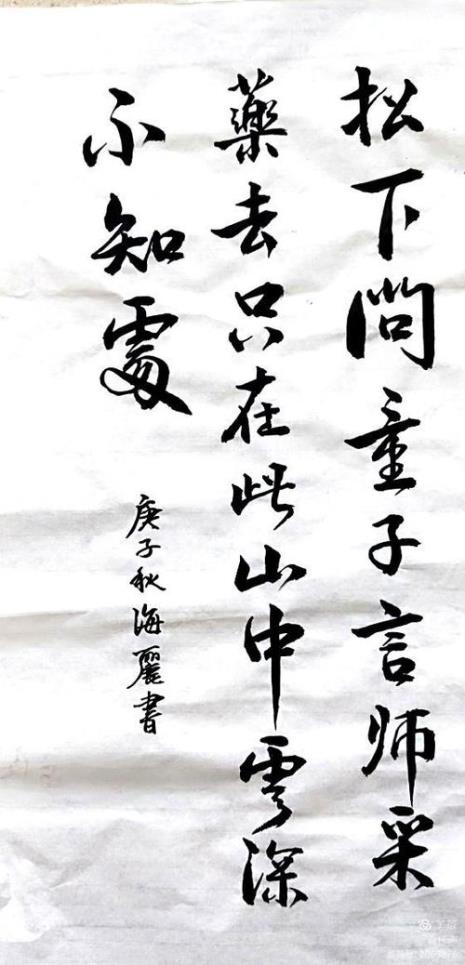 松下問童子言师采
藥去只在此山中雲深
不知處
庚子秋海麗書